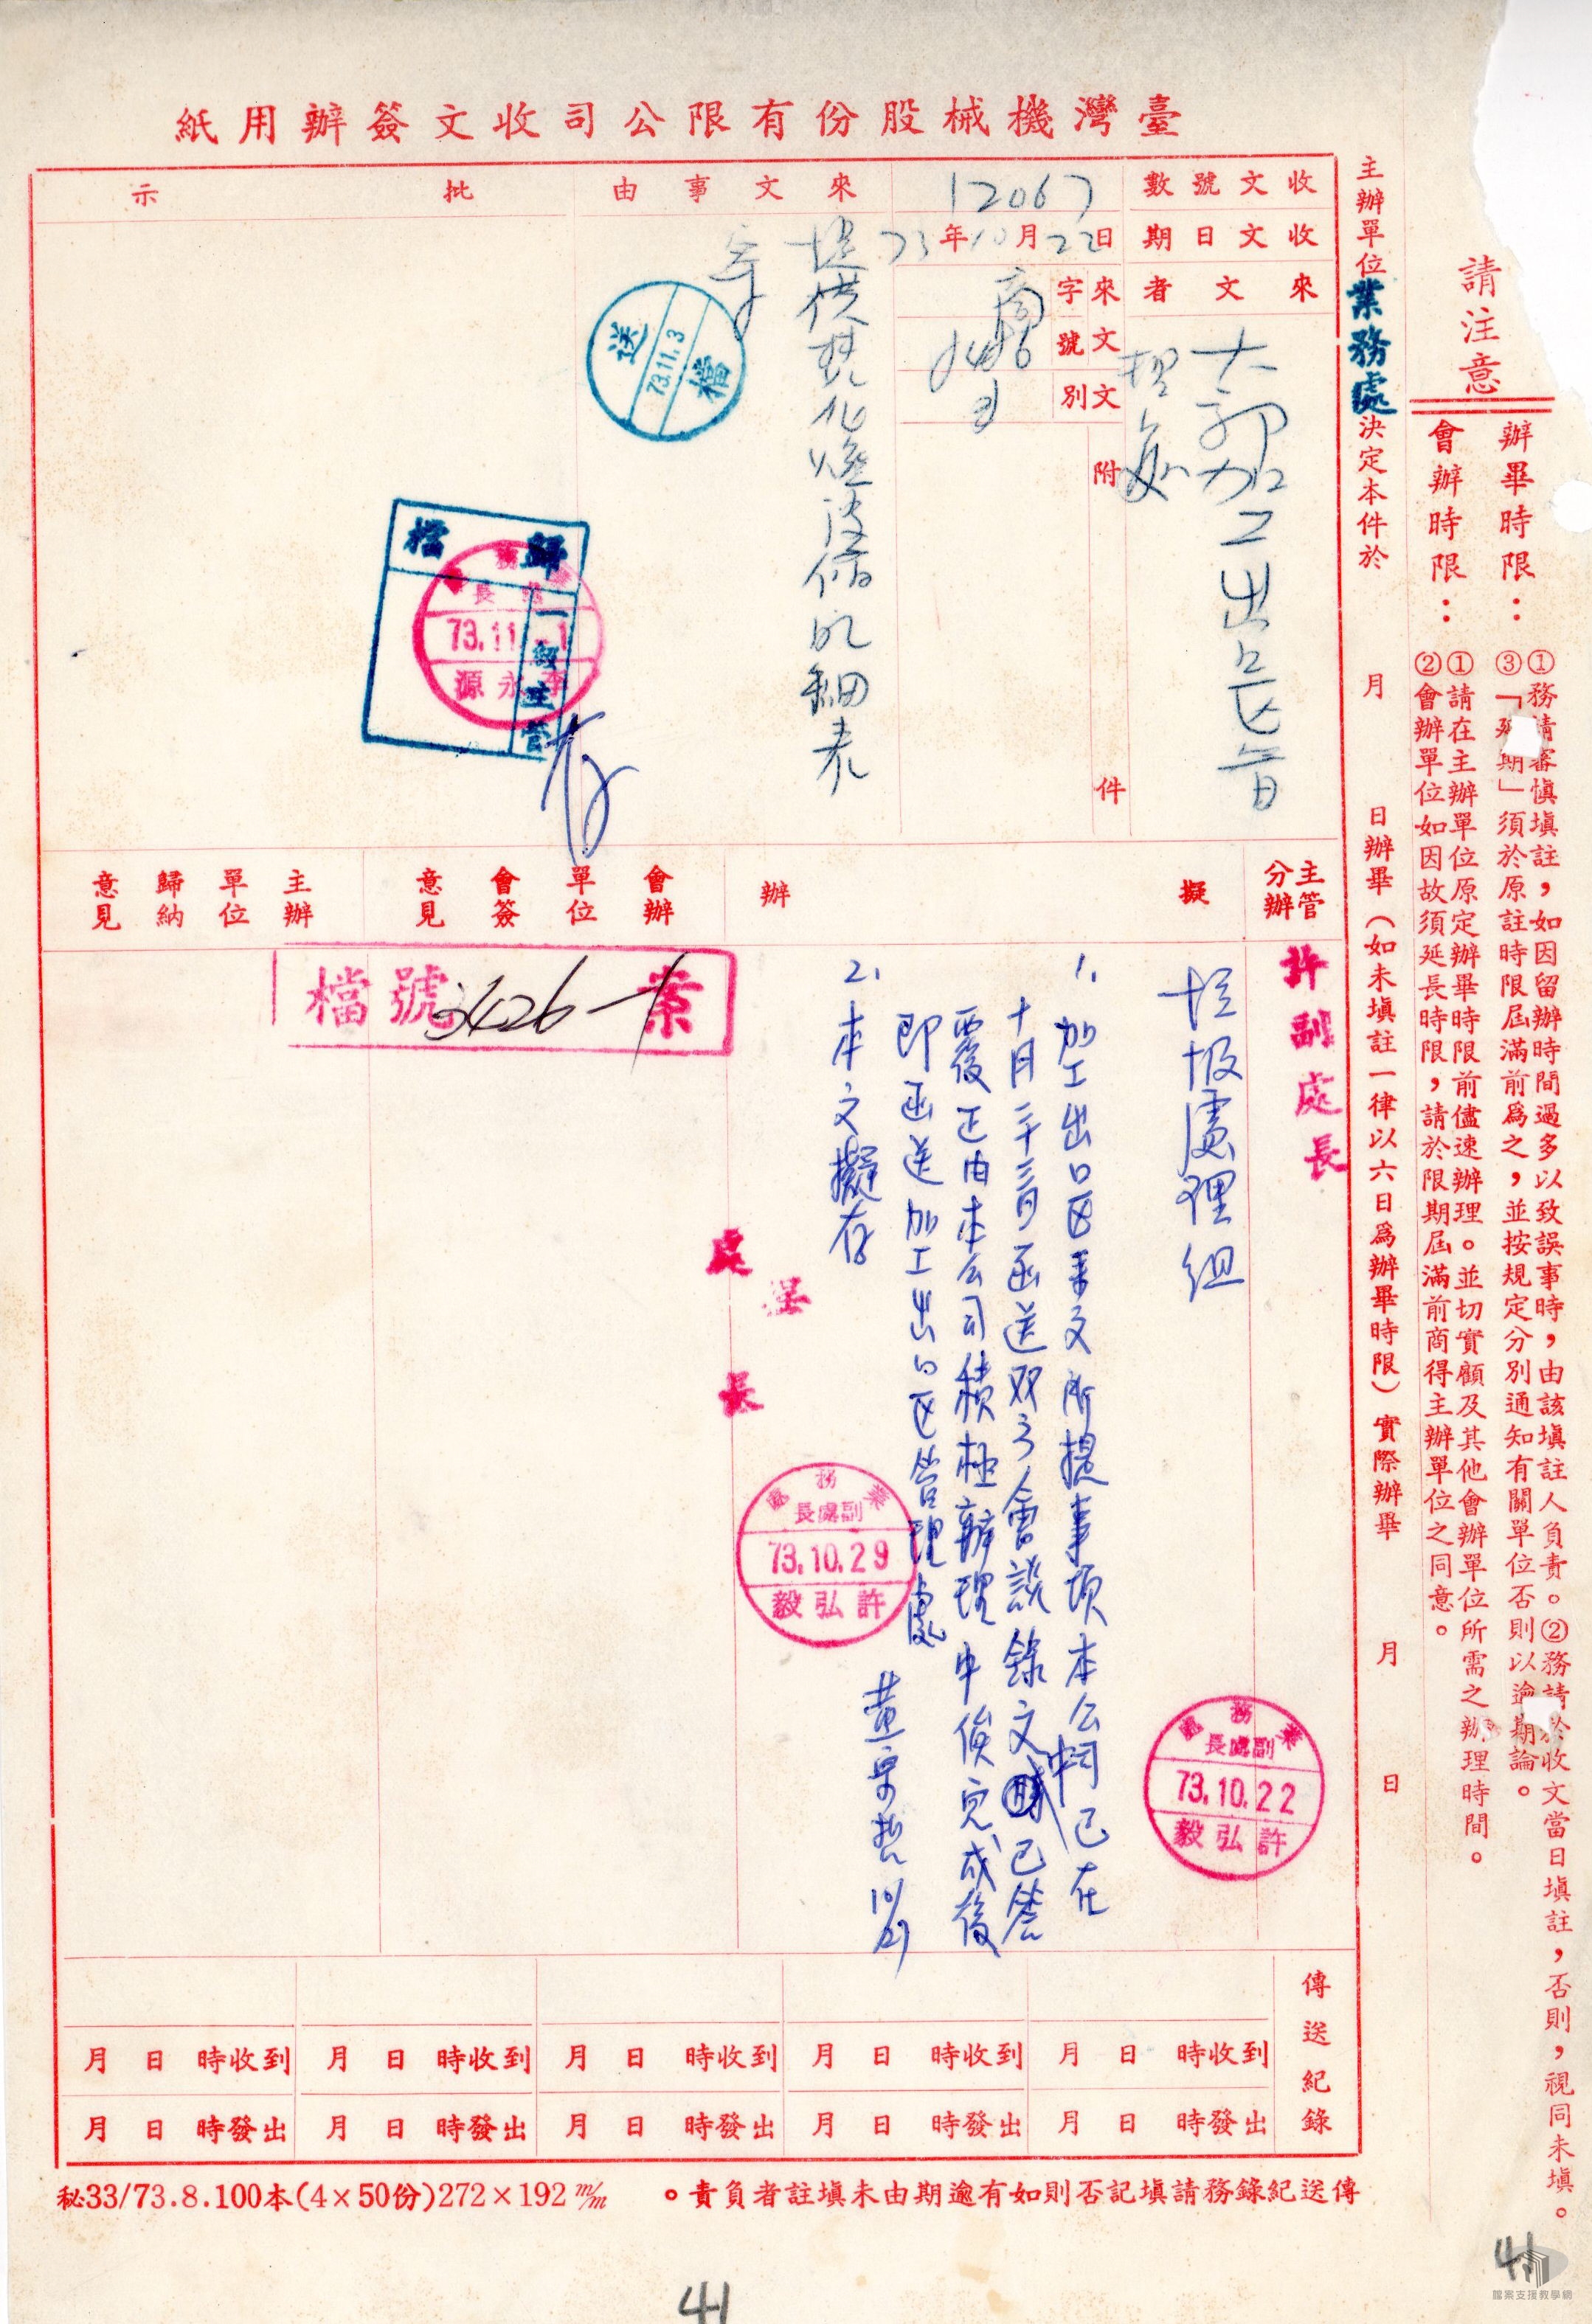 臺灣機械股份有限公司收文簽辦用紙
請注意
辦畢時限：①務請審愼填註，如因留辦時間過多以致誤事時，由該填註人負責。②務請於收文當日填註，否則，視同未填。
③「延期」須於原註時限屆滿前爲之，並按規定分別通知有關單位否則以逾期論。
會辦時限：①請在主辦單位原定辦畢時限前儘速辦理。並切實顧及其他會辦單位所需之辦理時間。
②會辦單位如因故須延長時限，請於限期屆滿前商得主辦單位之同意。
主辦單位業務處決定本件於　月　日辦畢（如未填註一律以六日爲辦畢時限）實際辦畢　月　日
收文號數 12067
收文日期 73年10月22日
來文者 大鄭加工出口區管理處
來文字號
文別
附件
來文事由 提供焚化爐設備明細表
批示
送檔 73.11.3
歸檔 一級主管
業務處 處長 73.11.-1 李永源
存
主管分辦 許副處長
擬辦
垃圾處理組
1. 加工出口区來文所提事項本公司已在
十月二十三日函送双方會談錄文中已答
覆正由本公司積極辦理中俟完成後
即函送加工出口区管理處
2. 本文擬存
呈
處長
業務處 副處長 73.10.29 許弘毅
業務處 副處長 73.10.22 許弘毅
會辦單位會簽意見
主辦單位歸納意見
檔號 3426-1 業
傳送紀錄
月 日 時收到 月 日 時收到 月 日 時收到 月 日 時收到 月 日 時收到
月 日 時發出 月 日 時發出 月 日 時發出 月 日 時發出 月 日 時發出
傳送紀錄務請填記否則如有逾期由未填註者負責。
秘33/73.8.100本(4×50份)272×192 m/m
41
41
檔案支援教學網